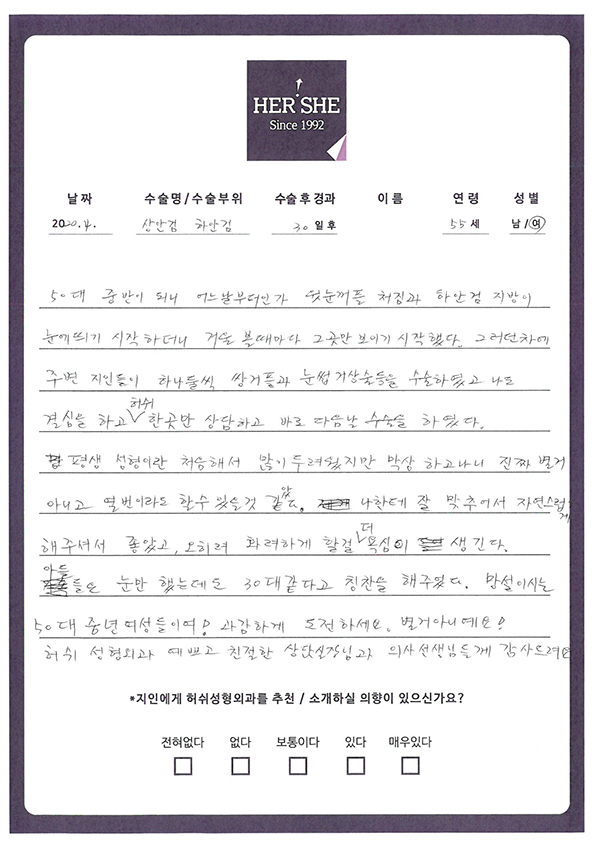 HER SHE
Since 1992
날짜 수술명/수술부위 수술후경과 이름 연령 성별
2020.4. 상안검 하안검 30일후 55세 남/여
50대 중반이 되니 어느날부터인가 윗눈꺼플 처짐과 하안검 지방이
눈에띄기 시작하더니 거울 볼때마다 그곳만 보이기 시작했다. 그러던차에
주변 지인들이 하나둘씩 쌍거플과 눈썹거상술등을 수술하였고 나도
결심을 하고 허쉬 한곳만 상담하고 바로 다음날 수술을 하였다.
평생 성형이란 처음해서 많이 두려웠지만 막상 하고나니 진짜 별거
아니고 열번이라도 할수 있을것 같았다. 나한테 잘 맞추어서 자연스럽게
해주셔서 좋았고, 오히려 화려하게 할걸 더 욕심이 생긴다.
아들들도 눈만 했는데도 30대같다고 칭찬을 해주었다. 망설이시는
50대 중년여성들이여! 과감하게 도전하세요. 별거아니예요!
허쉬 성형외과 예쁘고 친절한 상담실장님과 의사선생님들께 감사드려요
*지인에게 허쉬성형외과를 추천 / 소개하실 의향이 있으신가요?
전혀없다 없다 보통이다 있다 매우있다